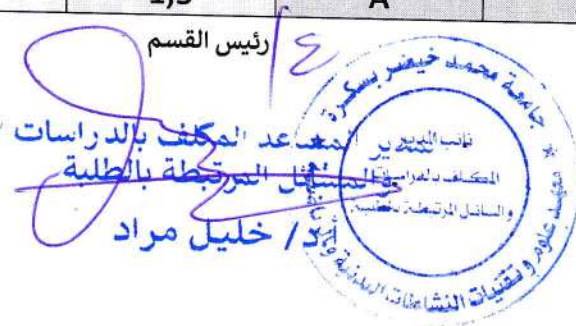 1,5 A
رئيس القسم
المدير المساعد المكلف بالدراسات
و المسائل المرتبطة بالطلبة
د/ خليل مراد
جامعة محمد خيضر بسكرة
نائب المدير
المكلف بالدراسات
والمسائل المرتبطة بالطلبة
معهد علوم و تقنيات النشاطات البدنية و